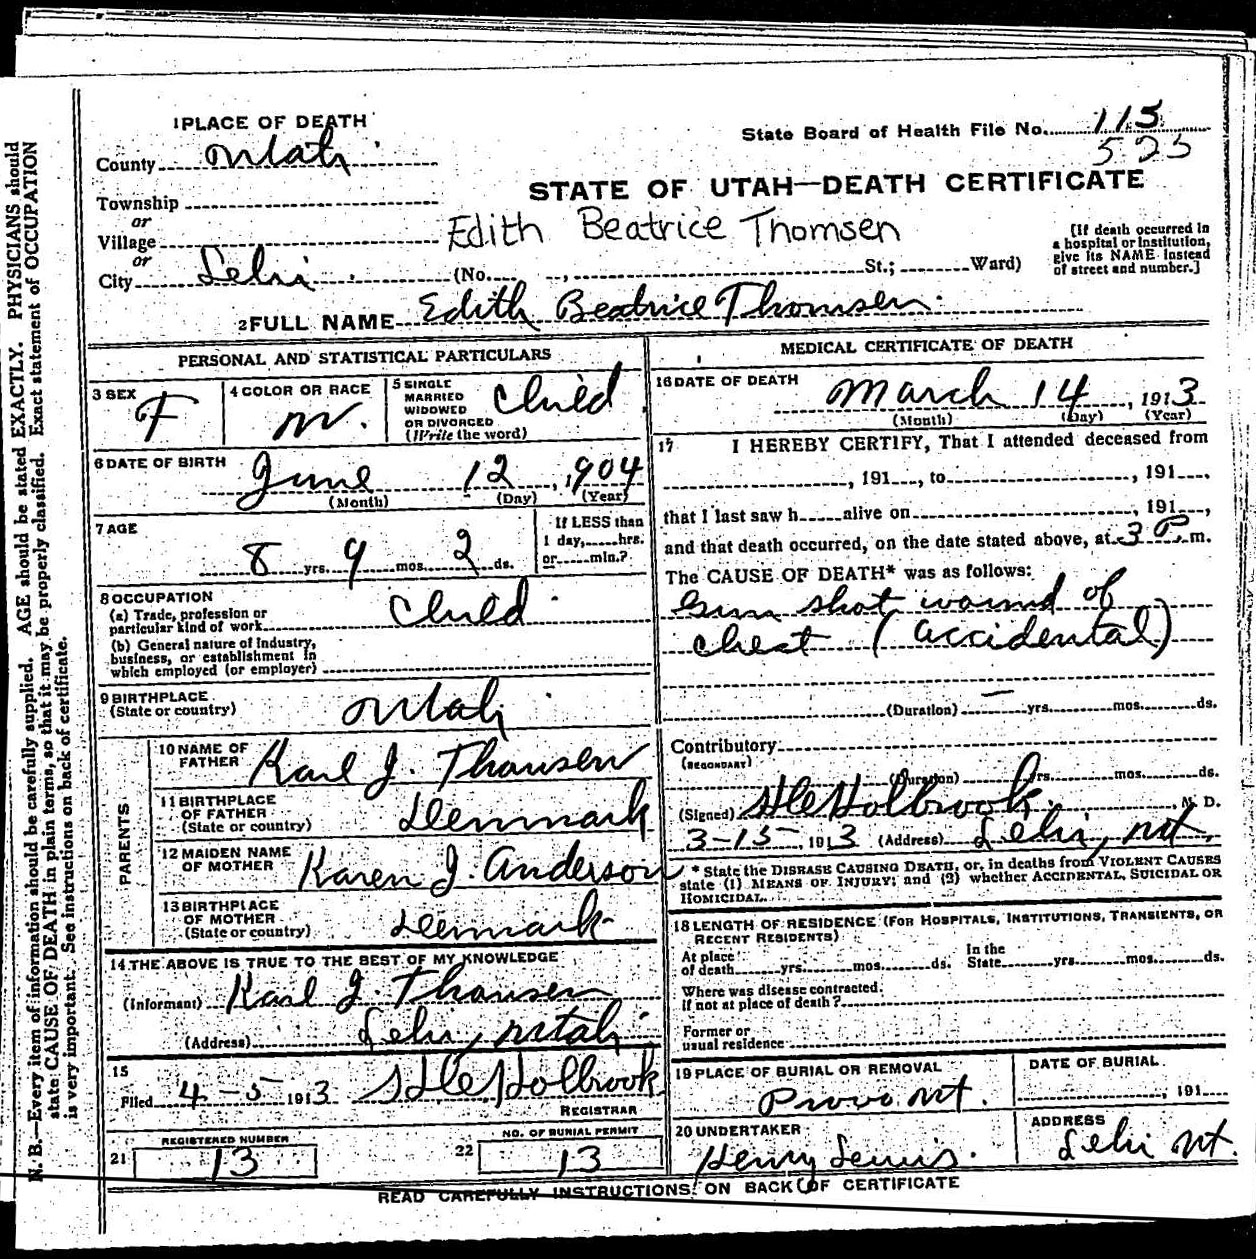 1 PLACE OF DEATH
State Board of Health File No. 115
525
County Utah
STATE OF UTAH—DEATH CERTIFICATE
Township
or
Village
Edith Beatrice Thomsen
[If death occurred in a hospital or institution, give its NAME instead of street and number.]
or
City Lehi (No. , St.; Ward)
2 FULL NAME Edith Beatrice Thomsen
PERSONAL AND STATISTICAL PARTICULARS
3 SEX F
4 COLOR OR RACE W.
5 SINGLE MARRIED WIDOWED OR DIVORCED (Write the word) Child
6 DATE OF BIRTH June 12, 1904
(Month) (Day) (Year)
7 AGE
8 yrs. 9 mos. 2 ds.
If LESS than 1 day, hrs. or min.?
8 OCCUPATION
(a) Trade, profession or particular kind of work Child
(b) General nature of Industry, business, or establishment in which employed (or employer)
9 BIRTHPLACE (State or country) Utah
PARENTS
10 NAME OF FATHER Karl J. Thomsen
11 BIRTHPLACE OF FATHER (State or country) Denmark
12 MAIDEN NAME OF MOTHER Karen J. Anderson
13 BIRTHPLACE OF MOTHER (State or country) Denmark
14 THE ABOVE IS TRUE TO THE BEST OF MY KNOWLEDGE
(Informant) Karl J. Thomsen
(Address) Lehi, Utah
15
Filed 4-5 1913 Holbrook
REGISTRAR
21 REGISTERED NUMBER 13
22 NO. OF BURIAL PERMIT 13
MEDICAL CERTIFICATE OF DEATH
16 DATE OF DEATH
March 14, 1913
(Month) (Day) (Year)
17 I HEREBY CERTIFY, That I attended deceased from
, 191 , to , 191 ,
that I last saw h alive on , 191 ,
and that death occurred, on the date stated above, at 3 P. m.
The CAUSE OF DEATH* was as follows:
Gun shot wound of
chest (accidental)
(Duration) — yrs. mos. ds.
Contributory
(SECONDARY)
(Duration) yrs. mos. ds.
(Signed) Holbrook, M. D.
3-15-, 1913 (Address) Lehi, Ut.
* State the DISEASE CAUSING DEATH, or, in deaths from VIOLENT CAUSES
state (1) MEANS OF INJURY; and (2) whether ACCIDENTAL, SUICIDAL OR
HOMICIDAL.
18 LENGTH OF RESIDENCE (FOR HOSPITALS, INSTITUTIONS, TRANSIENTS, OR
RECENT RESIDENTS)
At place of death yrs. mos. ds. In the State yrs. mos. ds.
Where was disease contracted, if not at place of death?
Former or usual residence
19 PLACE OF BURIAL OR REMOVAL
Provo Ut.
DATE OF BURIAL
, 191
20 UNDERTAKER
Henry Lewis.
ADDRESS
Lehi Ut.
READ CAREFULLY INSTRUCTIONS ON BACK OF CERTIFICATE
N. B.—Every item of information should be carefully supplied. AGE should be stated EXACTLY. PHYSICIANS should
state CAUSE OF DEATH in plain terms, so that it may be properly classified. Exact statement of OCCUPATION
is very important. See instructions on back of certificate.